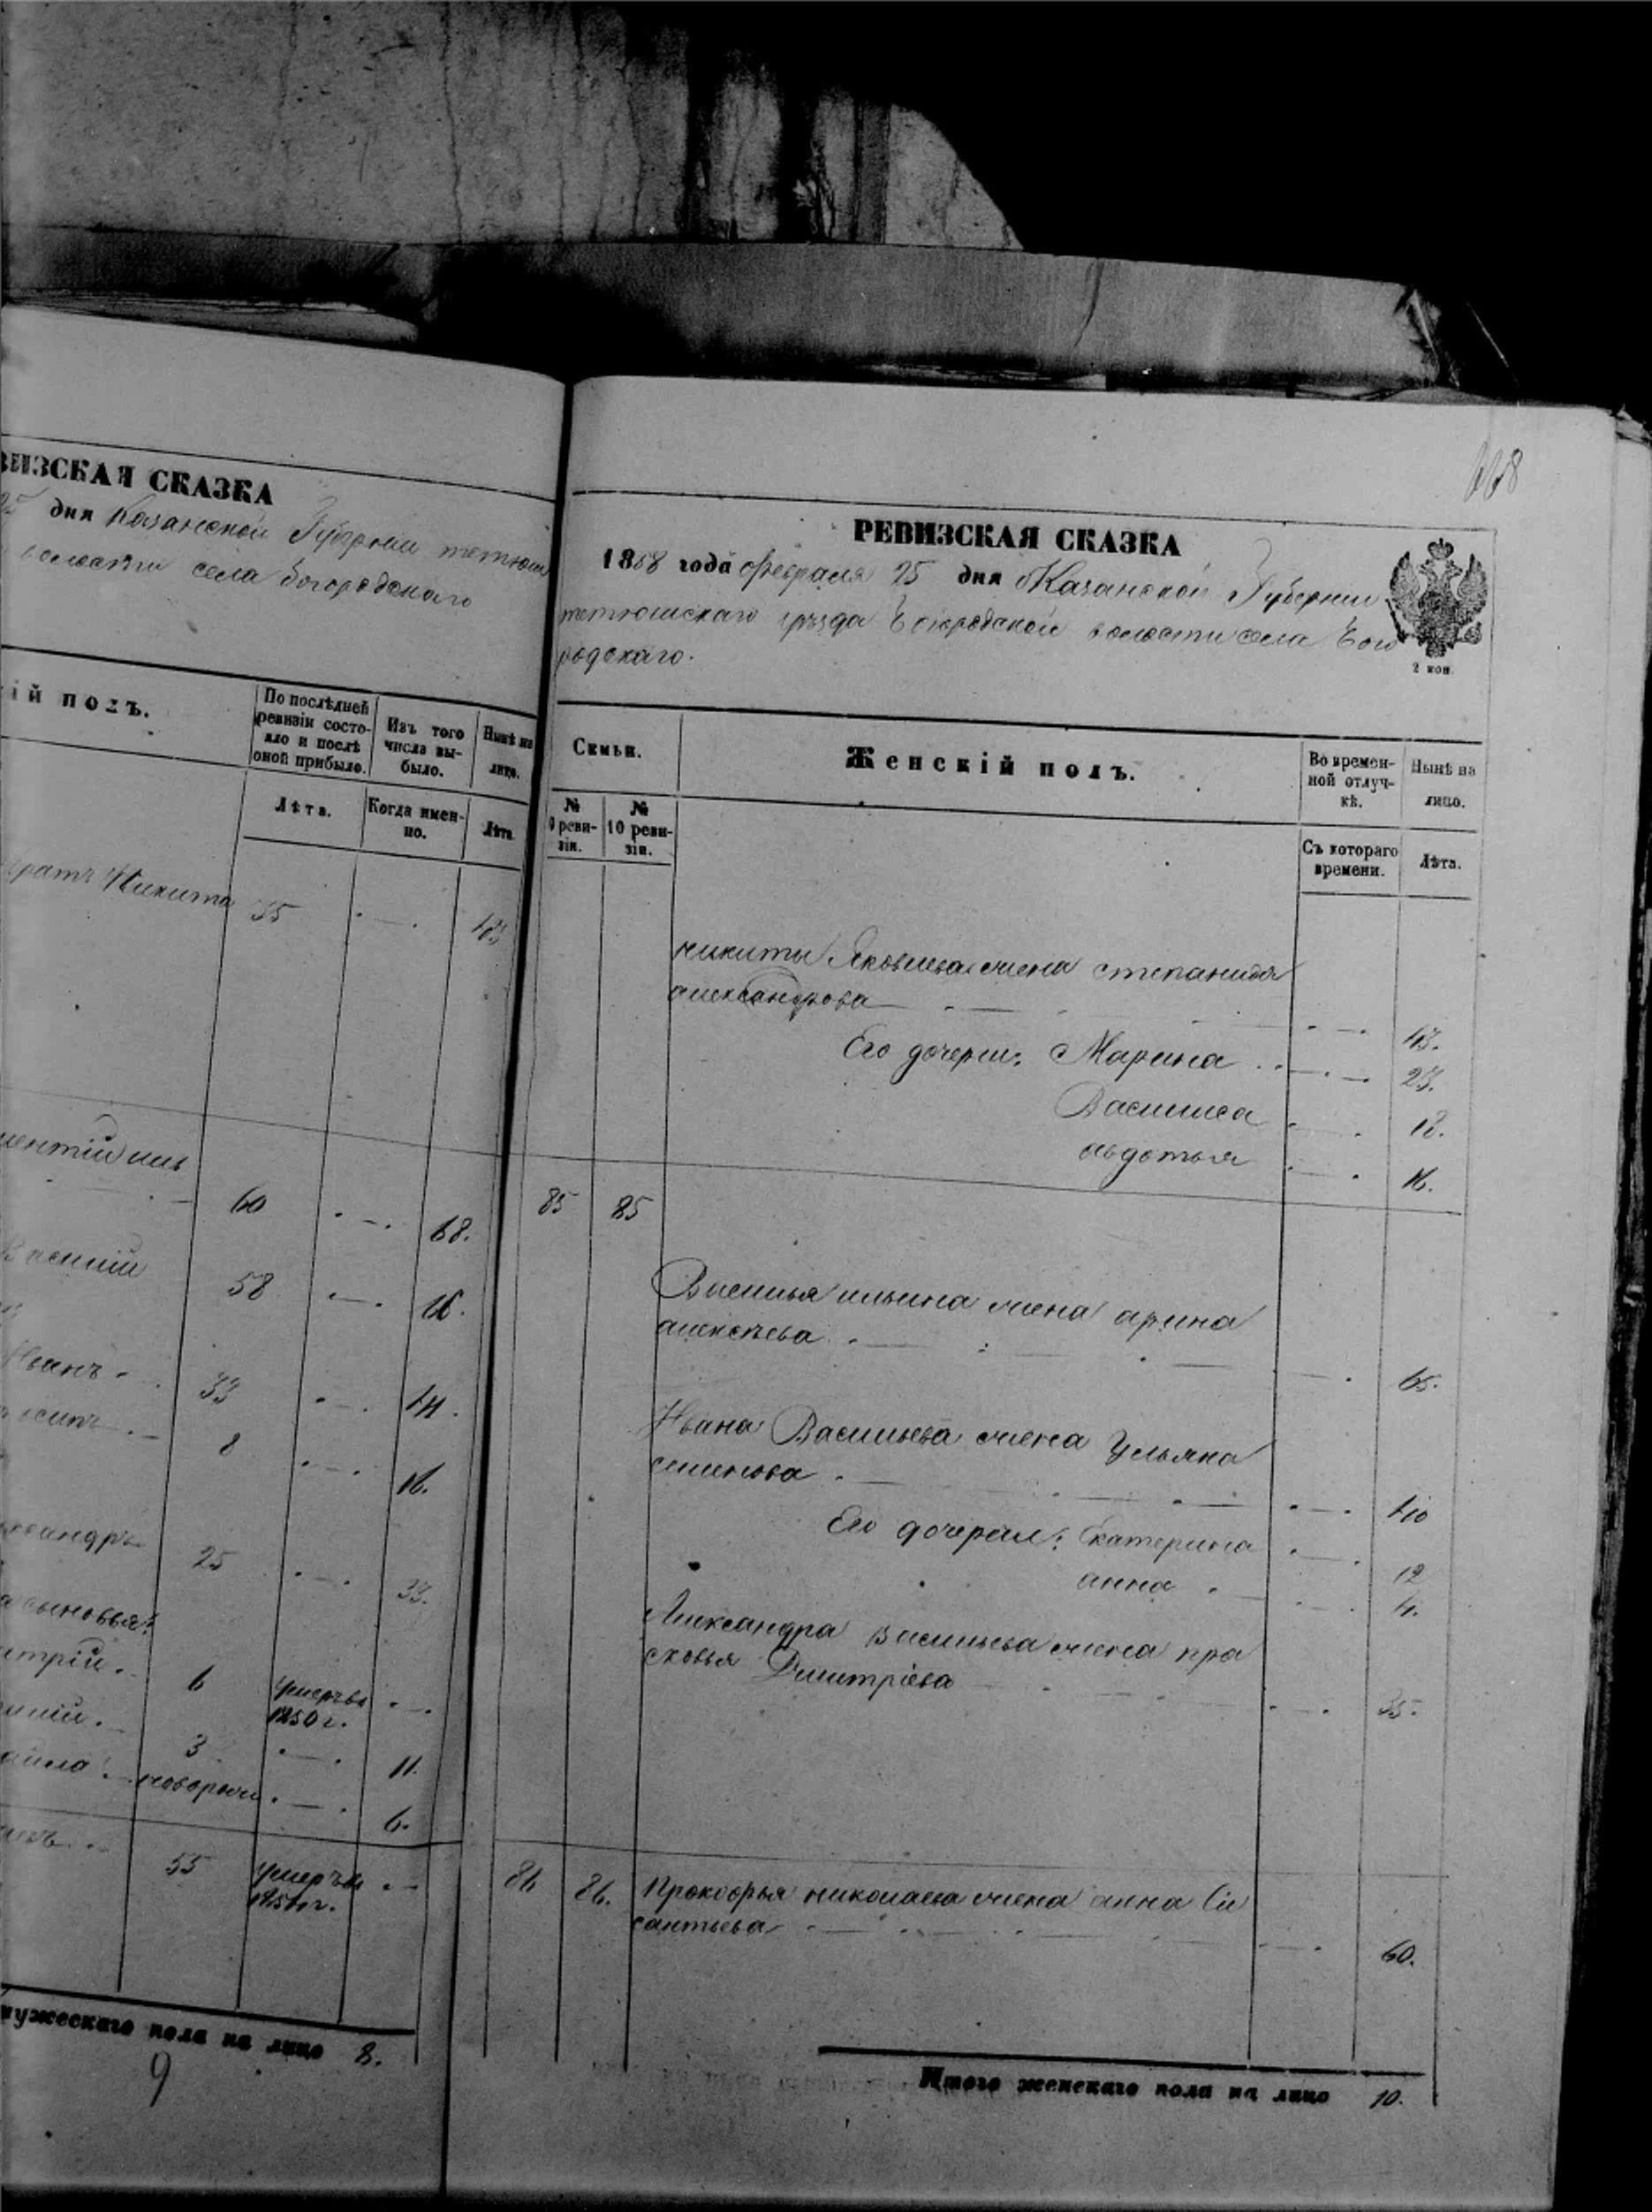 ВИЗСКАЯ СКАЗКА
25 дня Казанской Губернии тетюш
волости села Богородскаго
кій полъ.
По послѣдней ревизіи состояло и послѣ оной прибыло.
Изъ того числа выбыло.
Нынѣ на лицо.
Лѣта.
Когда именно.
Лѣта
братъ Никита 35 43
60 68.
Василій 58 66.
Иванъ 33 41.
осипъ 8 16.
ександръ 25 33.
сыновья:
итрій. 6 умеръ въ 1850 г.
силій. 3 11.
айла новорож 6.
55 умеръ въ
мужескаго пола на лицо 8.
9
РЕВИЗСКАЯ СКАЗКА
1858 года Февраля 25 дня Казанской Губернии
тетюшскаго уѣзда Богородской волости села Бого
родскаго.
2 коп.
Семьи.
Женскій полъ.
Во временной отлучкѣ.
Нынѣ на лицо.
№ 9 ревизіи.
№ 10 ревизіи.
Съ котораго времени.
Лѣта.
никиты Яковлева жена степанида
александрова 43.
Его дочери: Марина 23.
Василиса 18.
авдотья 16.
85 85
Василья ильина жена арина
алексѣева 65.
Ивана Васильева жена Ульяна
семенова 40
Его дочери: Екатерина 12
анна 4.
Александра Васильева жена пра
сковья Дмитріева 35.
86 86. Прокофья николаева жена анна
60.
Итого женскаго пола на лицо 10.